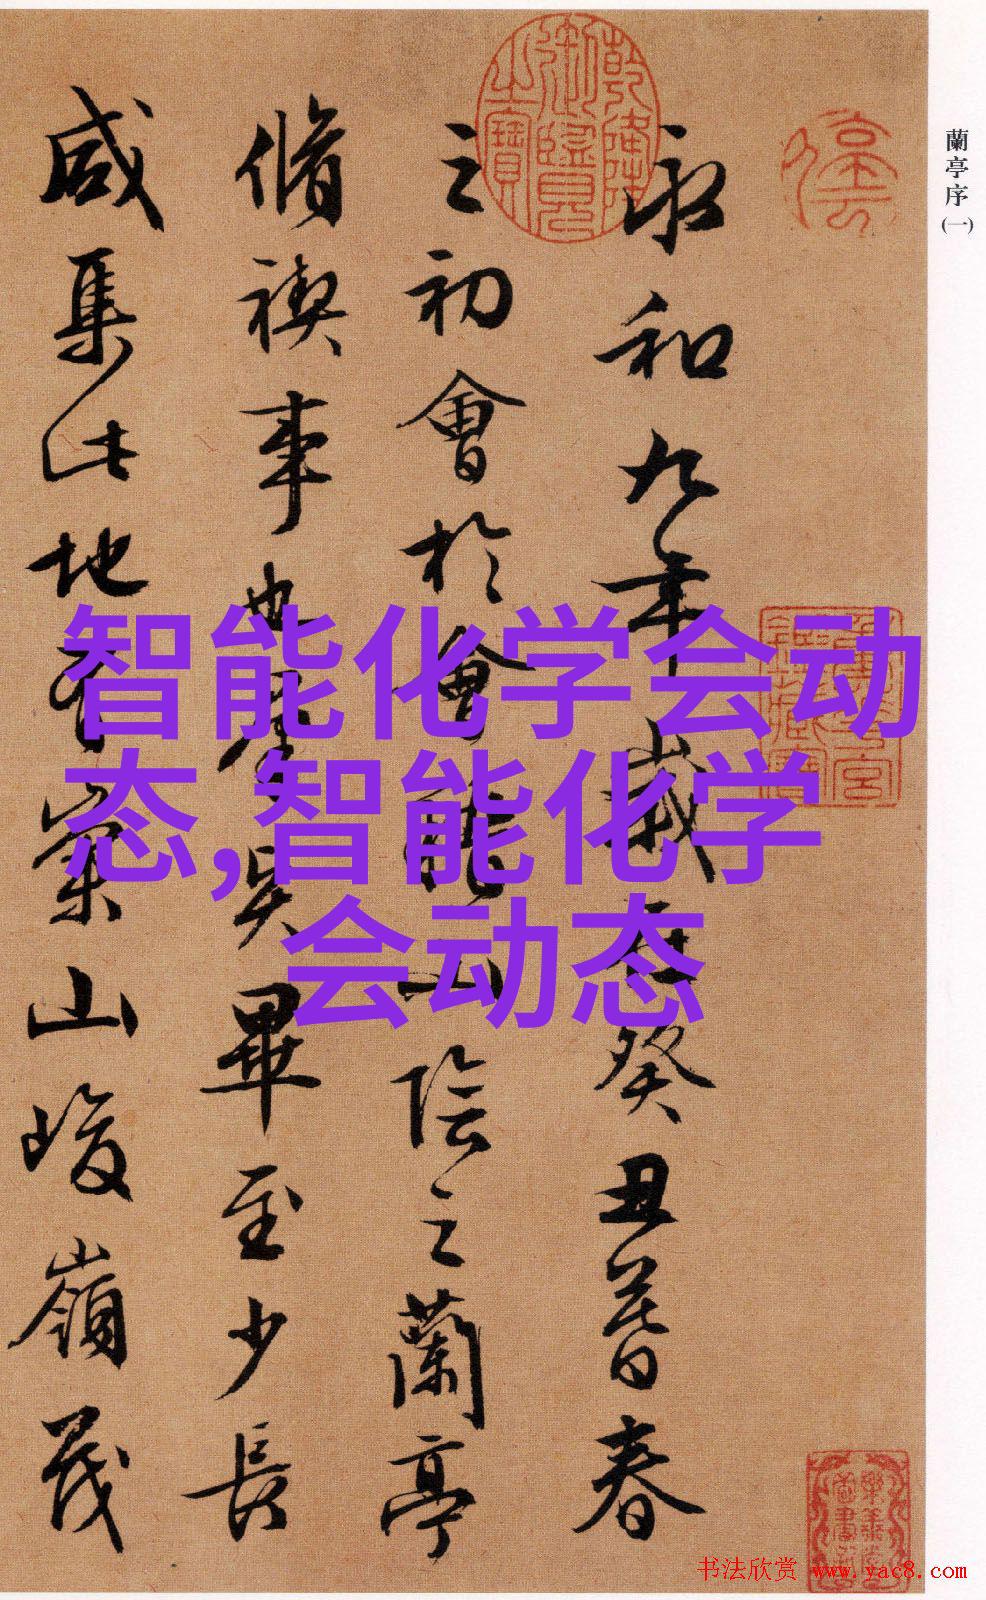 蘭亭序(一)
永和九年歲在癸丑暮春
之初會於會稽山陰之蘭亭
脩禊事也羣賢畢至少長
咸集此地有崇山峻嶺茂
乾隆御覽之寶
智能化学会动
态,智能化学
会动态
书法欣赏 www.yac8.com